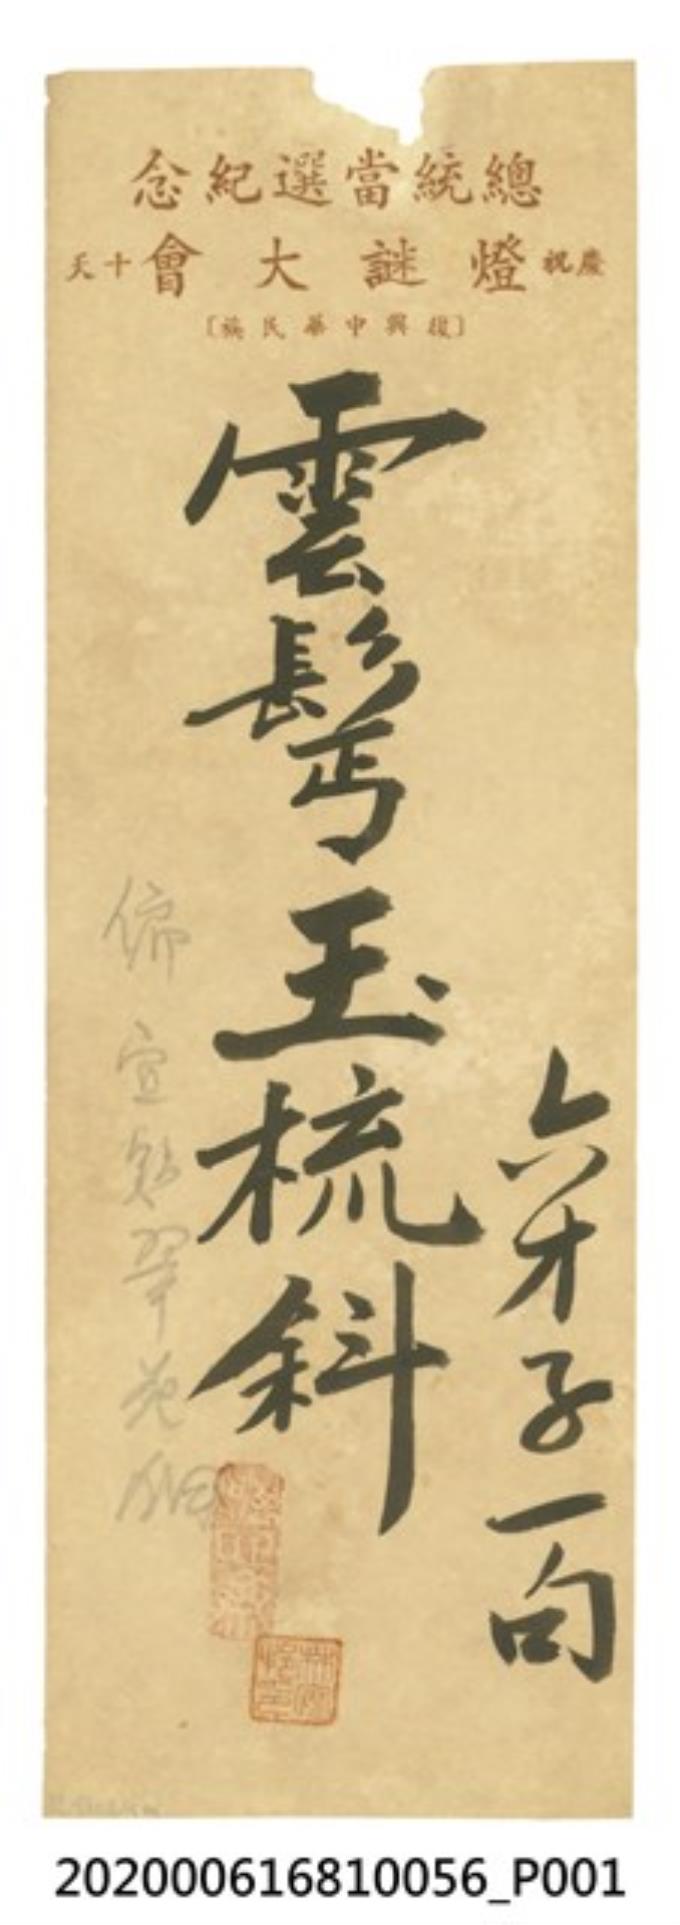 總統當選紀念
慶祝燈謎大會十天
〔復興中華民族〕
六才子一句
雲鬢玉梳斜
偏宜貼翠花鈿
202000616810056_P001